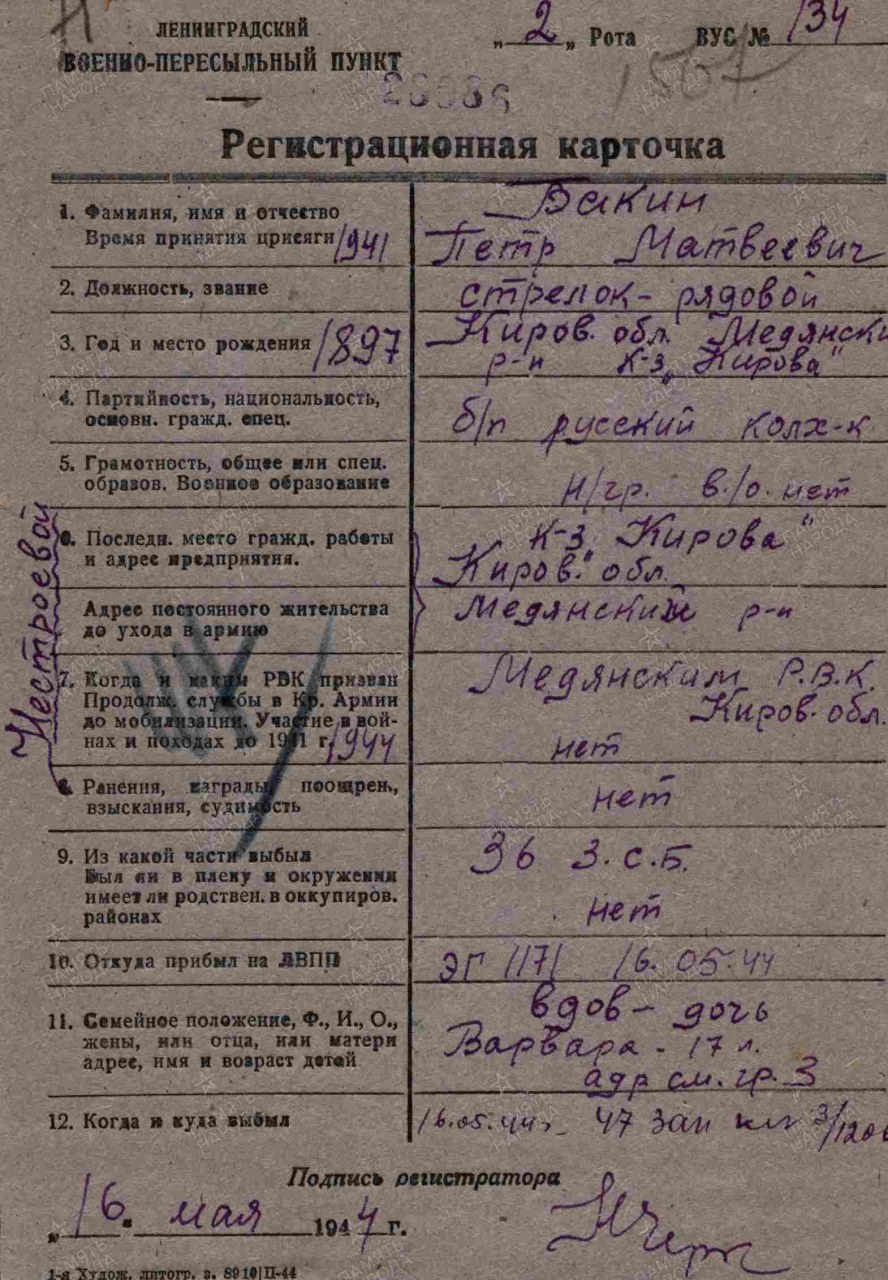 ЛЕНИНГРАДСКИЙ
ВОЕННО-ПЕРЕСЫЛЬНЫЙ ПУНКТ
„2„ Рота ВУС № 134
1507
Регистрационная карточка
1. Фамилия, имя и отчество
Время принятия присяги 1941
Бакин
Петр Матвеевич
2. Должность, звание
стрелок - рядовой
3. Год и место рождения 1897
Киров. обл. Медянски
р-н к-з „Кирова"
4. Партийность, национальность,
основн. гражд. спец.
б/п русский колх-к
5. Грамотность, общее или спец.
образов. Военное образование
н/гр. в./о. нет
Нестроевой
6. Последн. место гражд. работы
и адрес предприятия.
к-з „Кирова"
Киров. обл.
Адрес постоянного жительства
до ухода в армию
Медянский р-н
7. Когда и каким РВК призван
Продолж. службы в Кр. Армии
до мобилизации. Участие в вой-
нах и походах до 1941 г. 1944
Медянским Р.В.К.
Киров. обл.
нет
8. Ранения, награды, поощрен,
взыскания, судимость
нет
9. Из какой части выбыл
Был ли в плену и окружении
имеет ли родствен. в оккупиров.
районах
36 З.С.Б.
нет
10. Откуда прибыл на ЛВПП
ЭГ 1171 16.05.44
11. Семейное положение, Ф., И., О.,
жены, или отца, или матери
адрес, имя и возраст детей
вдов - дочь
Варвара - 17 л.
адр см. гр. 3
12. Когда и куда выбыл
16.05.44г. 47 зап
Подпись регистратора
„16" мая 1944 г.
1-я Худож. литогр. з. 8910|П-44
ПАМЯТЬ НАРОДА